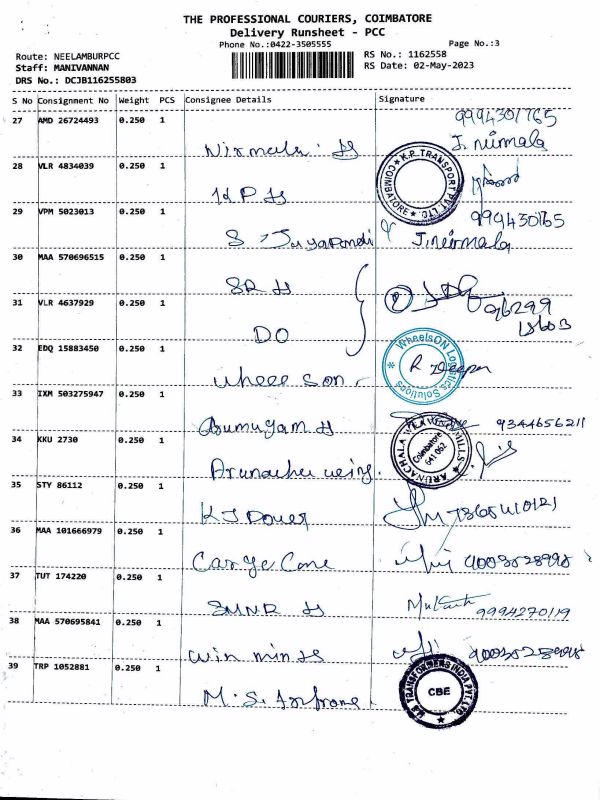 THE PROFESSIONAL COURIERS, COIMBATORE
Delivery Runsheet - PCC
Phone No.:0422-3505555 Page No.:3
Route: NEELAMBURPCC RS No.: 1162558
Staff: MANIVANNAN RS Date: 02-May-2023
DRS No.: DCJB116255803
S No Consignment No Weight PCS Consignee Details Signature
27 AMD 26724493 0.250 1 9994301765
Nirmala J. nirmala
28 VLR 4834039 0.250 1
K.P. TRANSPORT PVT. LTD. COIMBATORE
29 VPM 5023013 0.250 1 9994430165
S J.nirmala
30 MAA 570696515 0.250 1
SR
31 VLR 4637929 0.250 1
DO
32 EDQ 15883450 0.250 1 WheelsON Logistics Solutions
wheee son R
33 IXM 503275947 0.250 1
Arumugam 9344656211
34 KKU 2730 0.250 1 ARUNACHALA WEAVING MILLS Coimbatore 641 062
35 STY 86112 0.250 1
KJ Power
36 MAA 101666979 0.250 1
37 TUT 174220 0.250 1
SMNR 9994270119
38 MAA 570695841 0.250 1
win
39 TRP 1052881 0.250 1 TRANSFORMERS INDIA PVT. LTD. CBE
M. S.